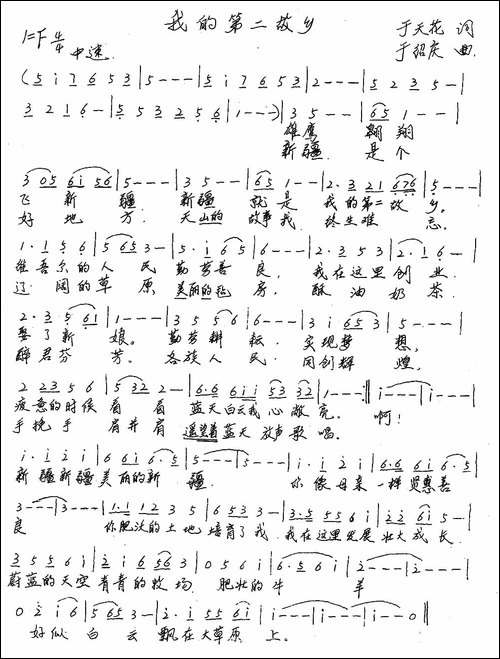 我的第二故乡
于天花 词
1=F 4/4 中速
于绍庆 曲
(5 i 7 6 5 3 | 5 - - - | 5 i 7 6 5 3 | 2 - - - | 5 2 3 5 - |
3 2 1 6 - | 5 5 3 2 5 6 | 1 - - - ) | 3 5 - - | 6 5 1 - - |
雄鹰 翱翔
新疆 是个
3 0 5 6 i 5 6 | 5 - - - | 3 5 - - | 6 5 1 - - | 2 · 3 2 1 6 7 6 | 5 - - - |
飞 新 疆 新疆 就是 我的第二故 乡。
好 地方 天山的 故事我 终生难 忘。
1 · 1 5 6 | 5 6 5 3 - | 5 · i 6 5 | 6 - - - | 2 · 3 5 3 | 2 · 1 6 - |
维吾尔的人 民 勤劳善 良, 我在这里创 业.
辽阔的草 原 美丽的毡 房, 酥油奶 茶.
2 · 3 5 6 1 | 1 - - - | 3 5 5 6 | 6 - - - | 3 i 6 5 3 | 5 - - - |
娶了新 娘。 勤劳耕 耘, 实现梦 想,
醉君芬 芳。 各族人 民, 同创辉 煌,
2 2 3 5 6 | 5 3 2 2 - | 6 · 6 6 i i 5 3 3 2 | 1 - - - :‖ i - - - | i - - - |
疲惫的时候 看 看 蓝天白云我 心敞亮。 啊!
手挽手 肩并肩 遥望着蓝天 放声歌 唱。
i · i 2 i | 6 6 i 6 · 5 | 5 - - - | 5 - - - | i · i 2 i | 6 · 6 6 i 6 · 5 |
新疆新疆美丽的新 疆. 你像母亲一样贤惠善
3 - - - | 3 - - - | 1 · 1 1 2 3 5 | 6 5 3 3 - | 3 · 5 5 5 6 i | 2 2 6 i 5 |
良 你肥沃的土地培育了我, 我在这里发展壮大成长.
3 5 5 6 i | 2 i 6 5 6 3 | 0 5 6 i | 6 · 5 6 i | 2 - - - | 2 - - - |
蔚蓝的天空有青青的牧场 肥壮的牛 羊
0 2 i 6 | 5 6 5 3 - | 2 · i 5 5 6 i | i - - - | i - - - | i - - 0 ‖
好似 白 云 飘在大草原 上。